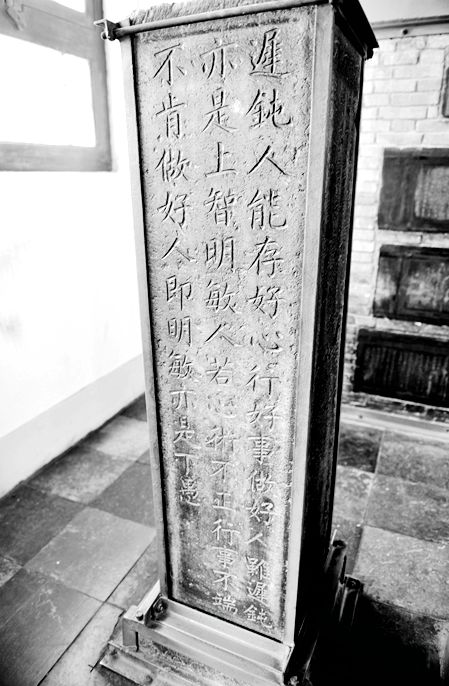 遲鈍人能存好心行好事做好人雖遲鈍
亦是上智明敏人若心術不正行事不端
不肯做好人即明敏亦是下愚